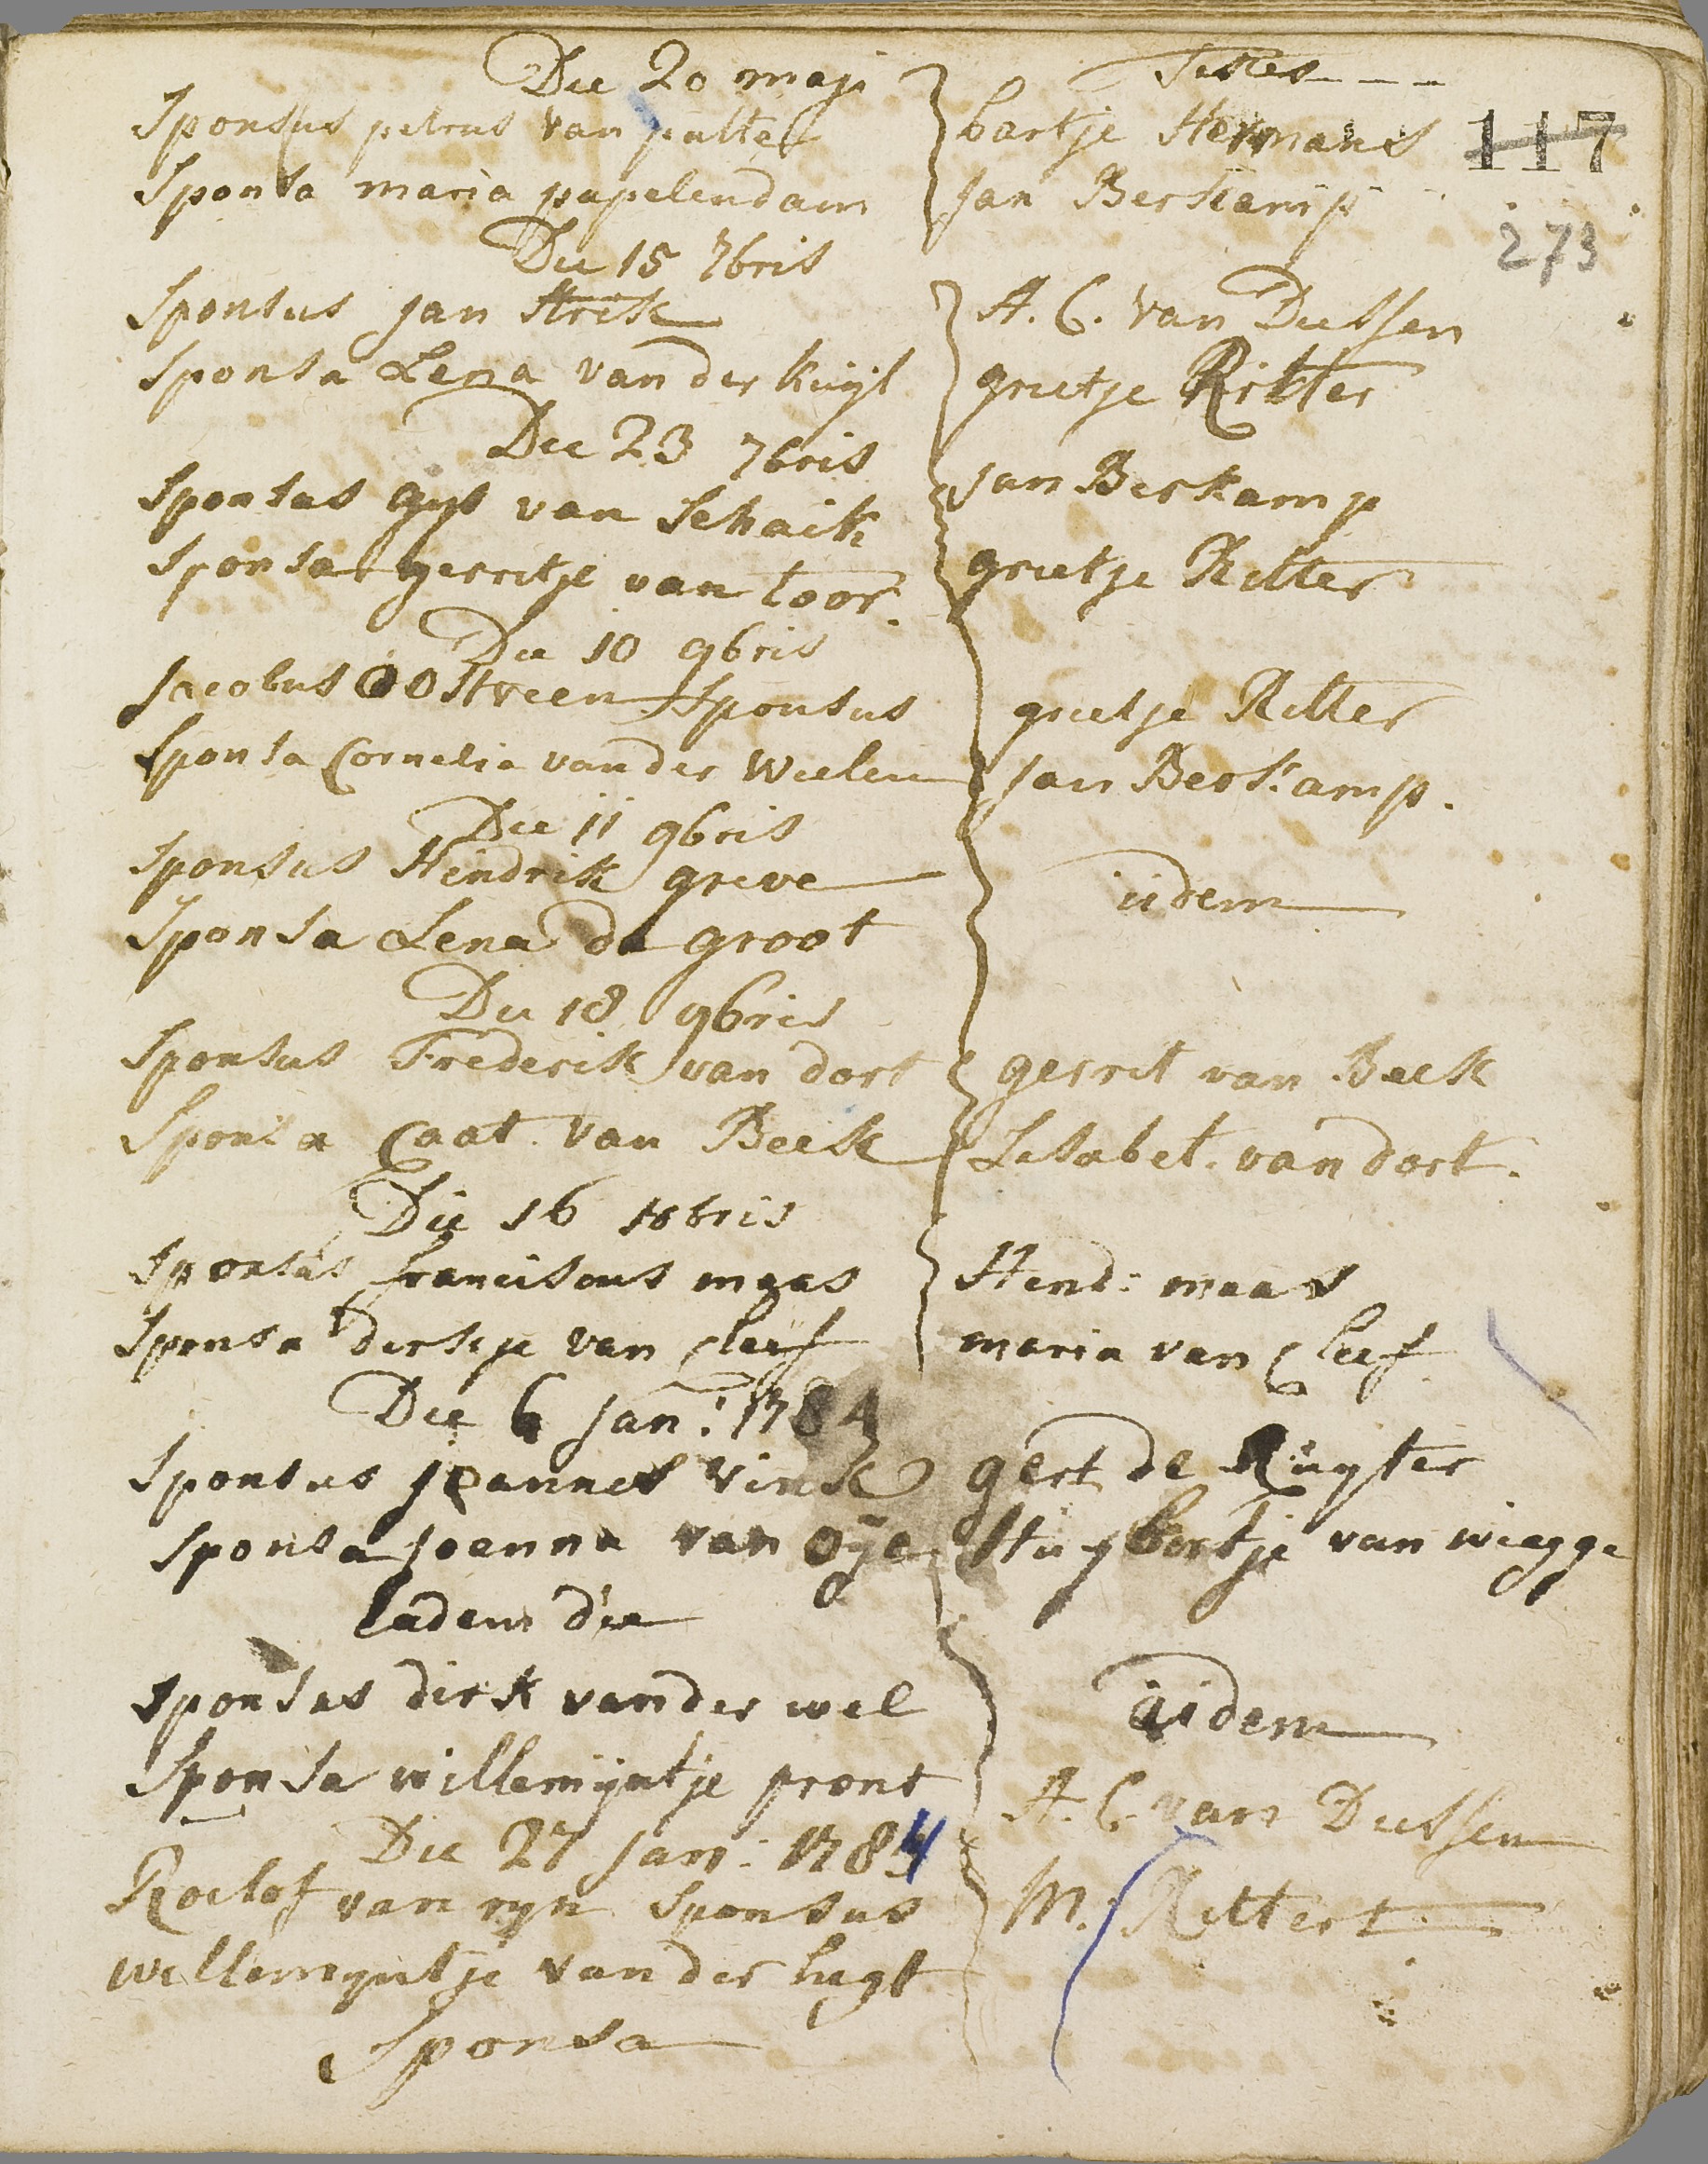 Die 20 maji
Testes
Sponsus petrus van putte
bartje Hermans
117
Sponsa maria papelendam
Jan Berkamp
273
Die 15 7bris
Sponsus Jan Strik
A. C. van Duessen
Sponsa Lena van der kuyl
grietje Ritter
Die 23 7bris
Sponsus gys van Schaik
Jan Berkamp
Sponsa gerritje van toor.
grietje Ritter
Die 10 9bris
Jacobus Oostveen Sponsus
grietje Ritter
Sponsa Cornelia vander Weelen
Jan Berkamp.
Die 11 9bris
Sponsus Hendrik greve
iidem
Sponsa Lena de groot
Die 18 9bris
Sponsus Frederik van dort
gerrit van Beek
Sponsa Caat. van Beek
Lisabet. van dort.
Die 16 10bris
Sponsus franciscus maas
Hend: maas
Sponsa dirkje van Cleef
maria van Cleef
Die 6 Jan: 1784
Sponsus joannes Vink
gert de Ruyter
Sponsa Joanna van oye
Huybertje van wiegge
Eadem die
Sponsus dirk vander wel
iidem
Sponsa willemijntje pront
A. C. van Duessen
Die 27 Jan: 1784
Roelof van ryn Sponsus
M. Rittert
willemyntje vander lugt
Sponsa